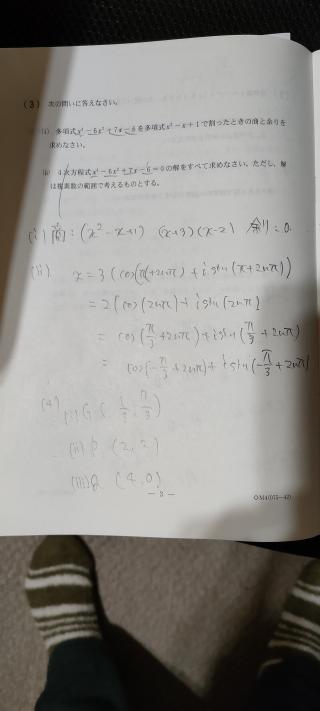 (3) 次の問いに答えなさい。
(i) 多項式x⁴−6x²+7x−6を多項式x²−x+1で割ったときの商と余りを
求めなさい。
(ii) 4次方程式x⁴−6x²+7x−6=0の解をすべて求めなさい。ただし、解
は複素数の範囲で考えるものとする。
(i) 商:(x²−x+1) (x+3)(x−2) 余り:0
(ii) x=3(cos(π+2nπ)+isin(π+2nπ))
=2(cos(2nπ)+isin(2nπ)
= cos(π/3+2nπ)+isin(π/3+2nπ)
= cos(−π/3+2nπ)+isin(−π/3+2nπ)
(4)
(i) G(
(ii) P (2,2)
(iii) Q (4,0)
— 3 —
○M4(075−42)